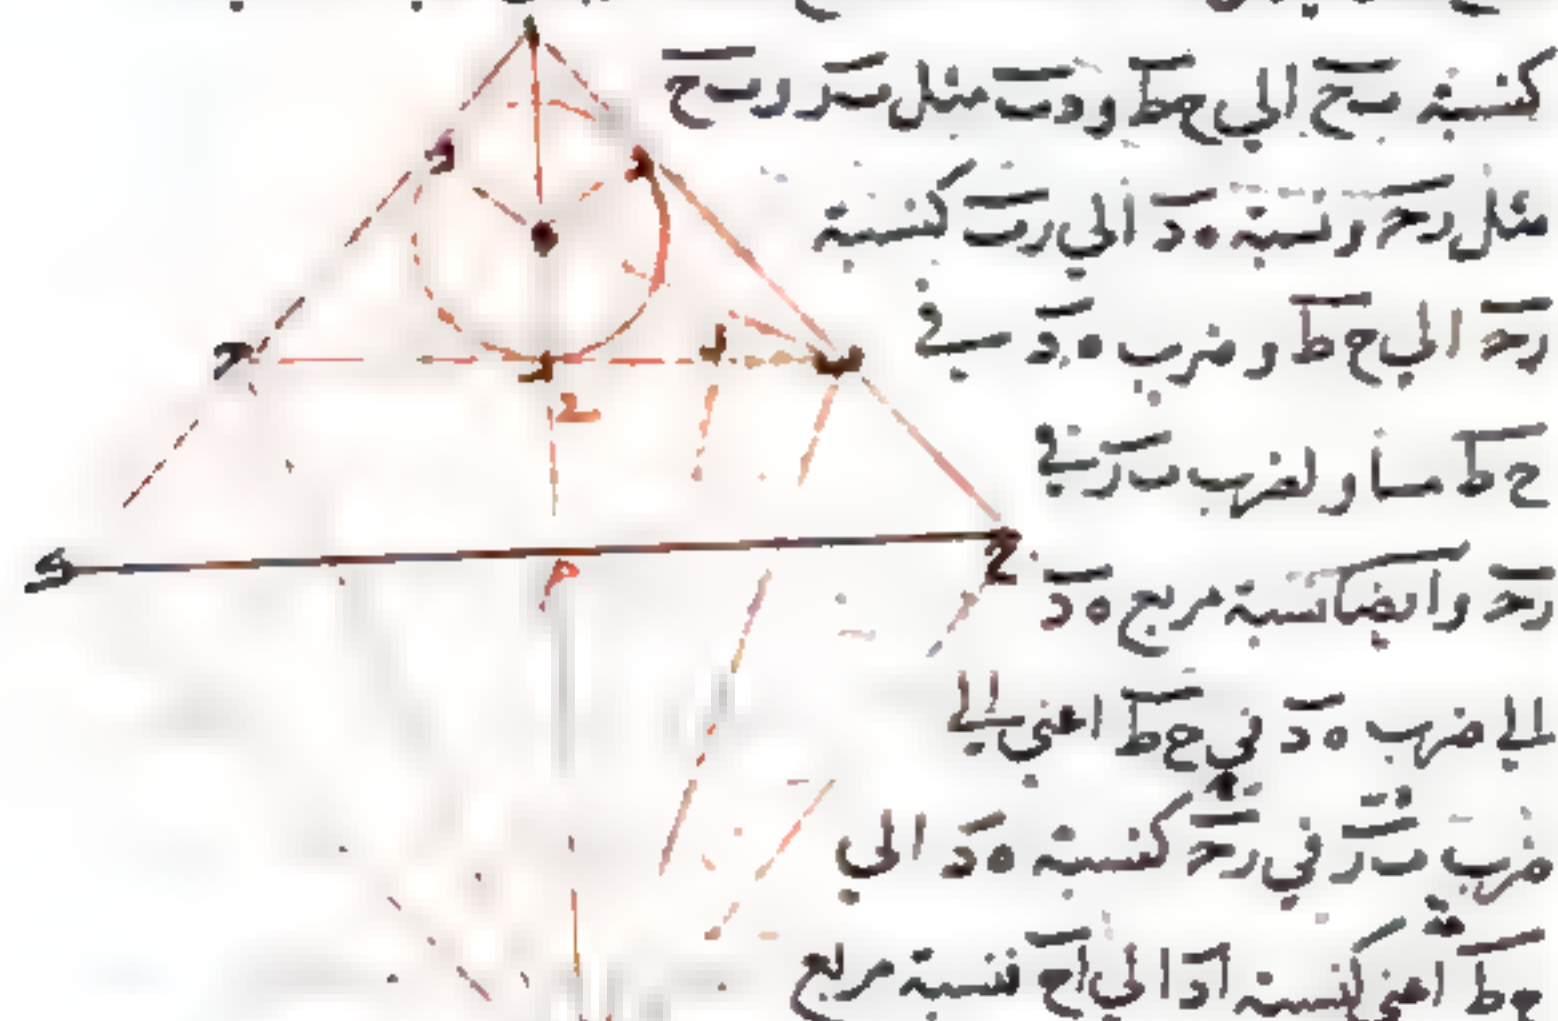 كنسبة بح الي حط ودب مثل بر وبح
مثل رح ونسبة ه د الي رب كنسبة
رح الي ح ط وضرب ه د في
ح ط مساو لضرب ب ر في
رح وايضا نسبة مربع ه د
الي ضرب ه د في ح ط اعني الي
ضرب ب ر في رح كنسبة ه د الي
ح ط اعني كنسبة اد الي اح فنسبة مربع